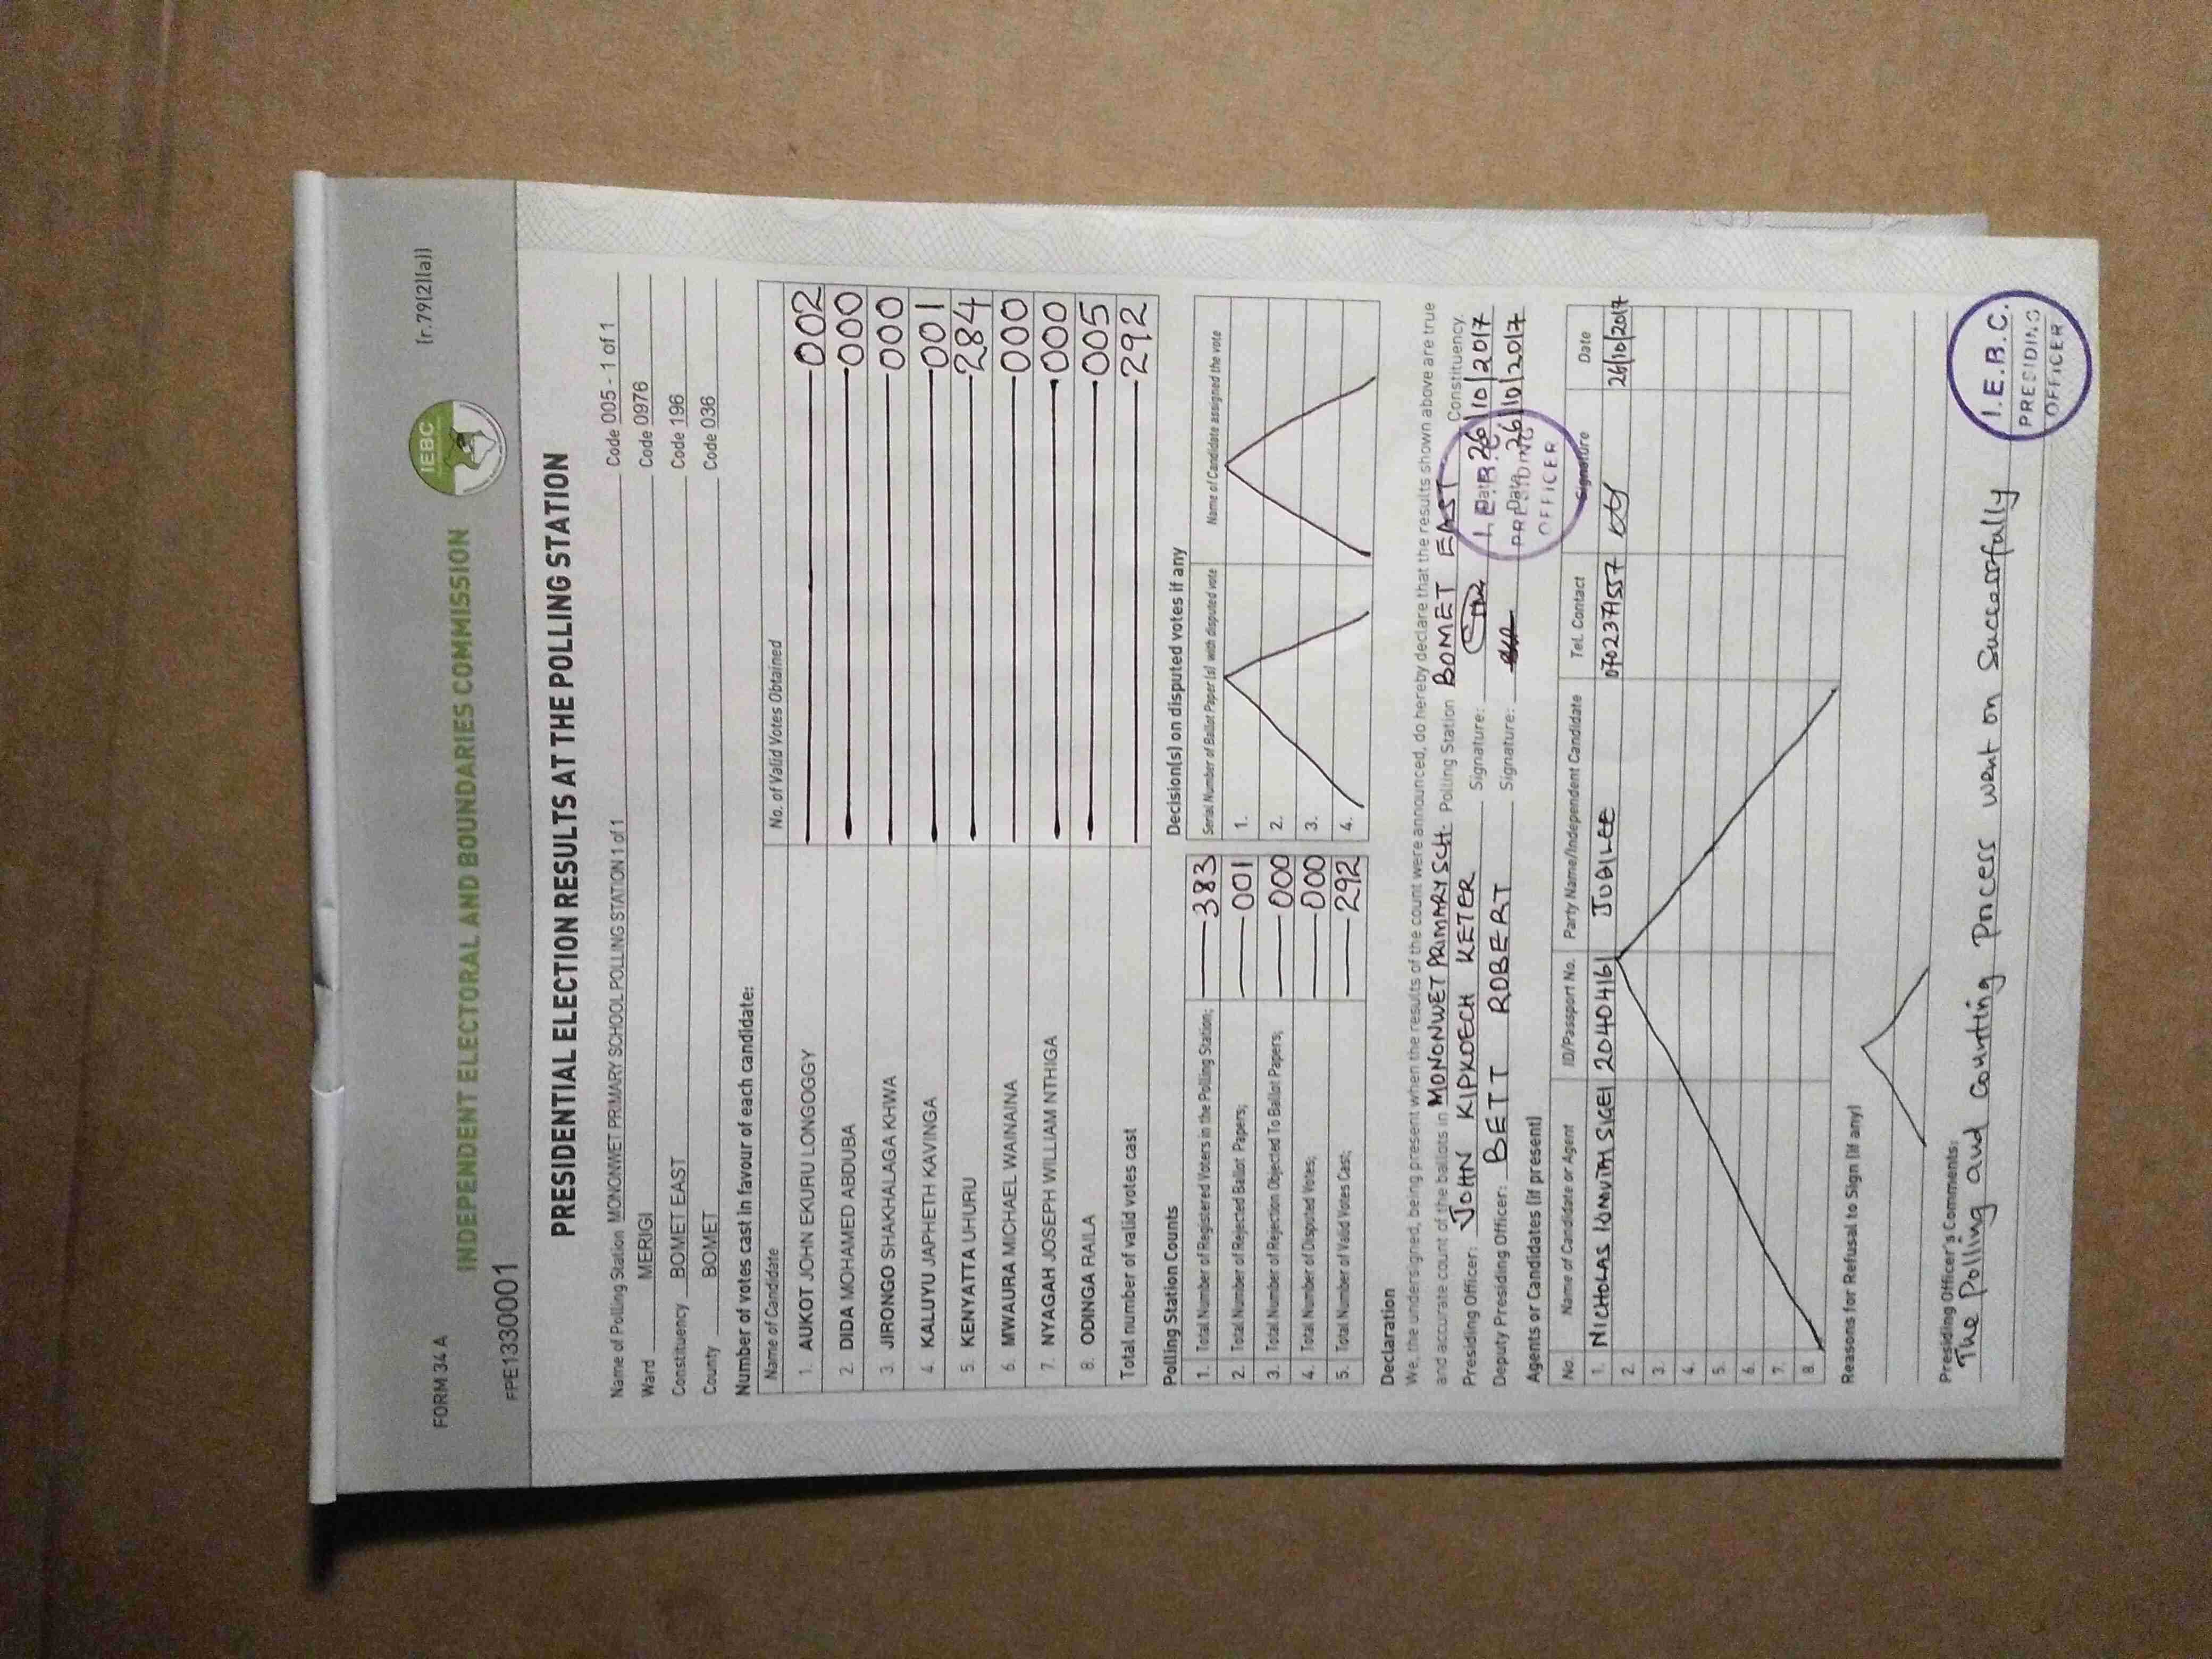 FORM 34 A
(r.79(2)(a))
IEBC
INDEPENDENT ELECTORAL AND BOUNDARIES COMMISSION
FPE1330001
PRESIDENTIAL ELECTION RESULTS AT THE POLLING STATION
Name of Polling Station MONONWET PRIMARY SCHOOL POLLING STATION 1 of 1 Code 005 - 1 of 1
Ward MERIGI Code 0976
Constituency BOMET EAST Code 196
County BOMET Code 036
Number of votes cast in favour of each candidate:
Name of Candidate No. of Valid Votes Obtained
1. AUKOT JOHN EKURU LONGOGGY 002
2. DIDA MOHAMED ABDUBA 000
3. JIRONGO SHAKHALAGA KHWA 000
4. KALUYU JAPHETH KAVINGA 001
5. KENYATTA UHURU 284
6. MWAURA MICHAEL WAINAINA 000
7. NYAGAH JOSEPH WILLIAM NTHIGA 000
8. ODINGA RAILA 005
Total number of valid votes cast 292
Polling Station Counts
1. Total Number of Registered Voters in the Polling Station; 383
2. Total Number of Rejected Ballot Papers; 001
3. Total Number of Rejection Objected To Ballot Papers; 000
4. Total Number of Disputed Votes; 000
5. Total Number of Valid Votes Cast; 292
Decision(s) on disputed votes if any
Serial Number of Ballot Paper (s) with disputed vote Name of Candidate assigned the vote
1.
2.
3.
4.
Declaration
We, the undersigned, being present when the results of the count were announced, do hereby declare that the results shown above are true
and accurate count of the ballots in MONONWET PRIMARY SCH. Polling Station BOMET EAST Constituency.
Presiding Officer: JOHN KIPKOECH KETER Signature: Date 26/10/2017
Deputy Presiding Officer: BETT ROBERT Signature: Date 26/10/2017
I.E.B.C.
PRESIDING
OFFICER
Agents or Candidates (if present)
No. Name of Candidate or Agent ID/Passport No. Party Name/Independent Candidate Tel. Contact Signature Date
1. NICHOLAS SIGEI 20404161 JUBILEE 0702371557 26/10/2017
2.
3.
4.
5.
6.
7.
8.
Reasons for Refusal to Sign (if any)
Presiding Officer's Comments:
The Polling and counting Process went on Successfully
I.E.B.C.
PRESIDING
OFFICER